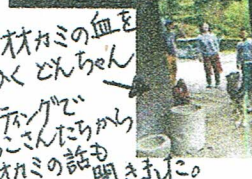 オオカミの血を
ひく どんちゃん
ティングで
こさんたちから
オカミの話も
聞きました。